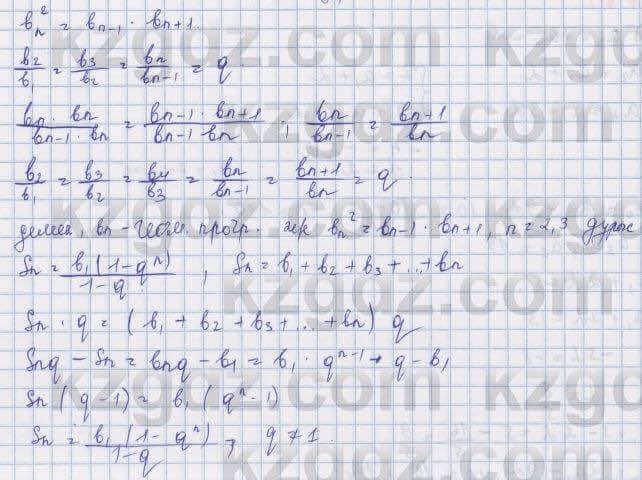 bₙ² = bₙ₋₁ · bₙ₊₁
b₂/b₁ = b₃/b₂ = bₙ/bₙ₋₁ = q
bₙ · bₙ/bₙ₋₁ · bₙ = bₙ₋₁ · bₙ₊₁/bₙ₋₁ bₙ ; bₙ/bₙ₋₁ = bₙ₊₁/bₙ
b₂/b₁ = b₃/b₂ = b₄/b₃ = bₙ/bₙ₋₁ = bₙ₊₁/bₙ = q.
демек, bₙ - геом. прогр. bₙ² = bₙ₋₁ · bₙ₊₁, n = 2,3 дұрыс
Sₙ = b₁(1-qⁿ)/1-q , Sₙ = b₁ + b₂ + b₃ + ... + bₙ
Sₙ · q = (b₁ + b₂ + b₃ + ... + bₙ) q
Sₙq - Sₙ = bₙq - b₁ = b₁ · qⁿ⁻¹ · q - b₁
Sₙ(q-1) = b₁(qⁿ-1)
Sₙ = b₁(1-qⁿ)/1-q , q ≠ 1.
kzgdz.com